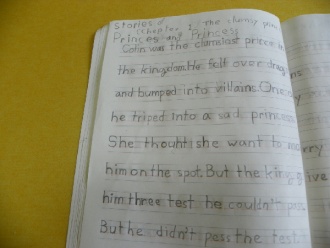 stories of
Chapter 1 The clumsy prince
Princes and Princess
Colin was the clumsist prince in
the kingdom. He felt over dragons
and bumped into villains. One day
he triped into a sad princess
She thought she want to marry
him on the spot. But the king give
him three test he couldn't pass
But he didn't pass the test